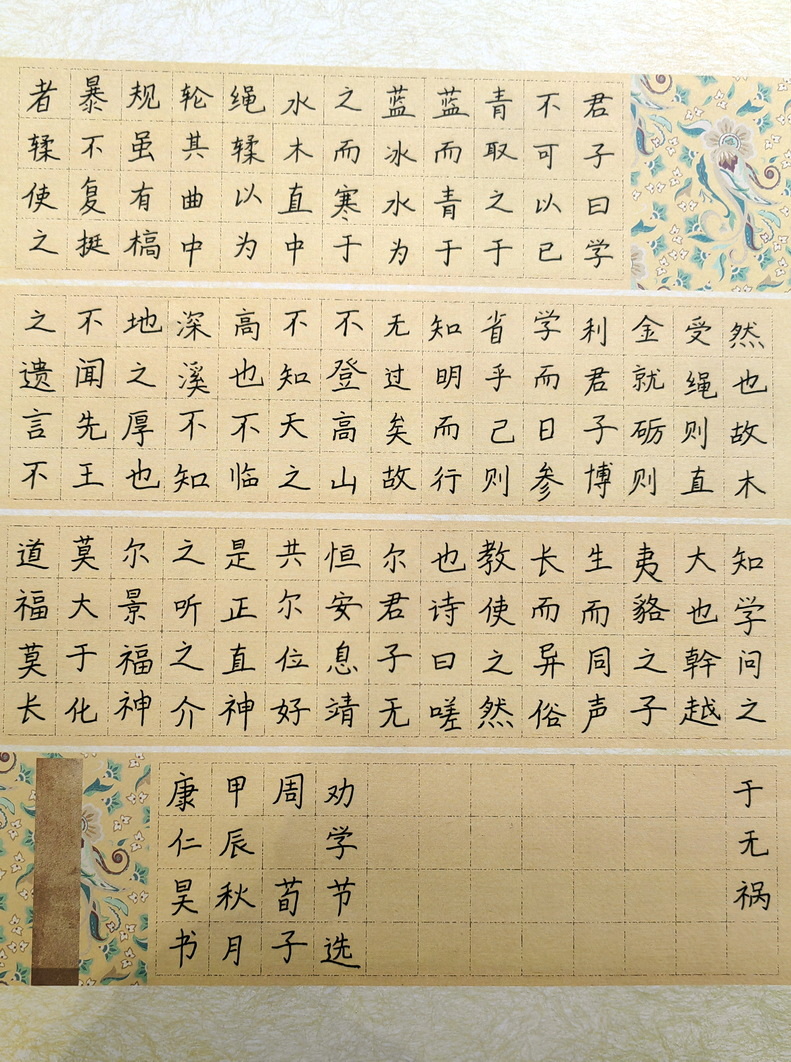 君子曰学
不可以已
青取之于
蓝而青于
蓝冰水为
之而寒于
水木直中
绳𫐓以为
轮其曲中
规虽有槁
暴不复挺
者𫐓使之
然也故木
受绳则直
金就砺则
利君子博
学而日参
省乎己则
知明而行
无过矣故
不登高山
不知天之
高也不临
深溪不知
地之厚也
不闻先王
之遗言不
知学问之
大也幹越
夷貉之子
生而同声
长而异俗
教使之然
也诗曰嗟
尔君子无
恒安息靖
共尔位好
是正直神
之听之介
尔景福神
莫大于化
道福莫长
于无祸
劝学节选
周 荀子
甲辰秋月
康仁昊书